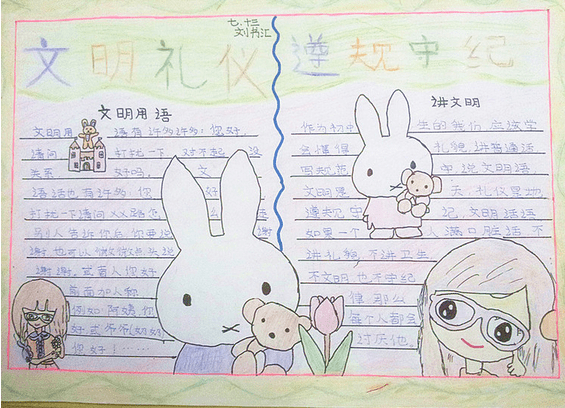 七.十三
刘书汇
文明礼仪 遵规守纪
文明用语
文明用语有许多许多：你好，
请问 打扰一下 对不起 没
关系 好吗 文
语话也有许多，你 好
打扰一下请问XX路怎 么
别人告诉你后你要说 谢
谢也可以
谢谢。
前面加人称
例如阿姨你
好或爷爷(奶奶)
你好！……
讲文明
作为初中生的我们应该学
会懂得礼貌讲普通话
中说文明语
文明是 天，礼仪是地
遵规守纪，文明话语
如果一个人满口脏话不
讲礼貌不讲卫生
不文明也不守纪
律那么
每个人都会
讨厌他。